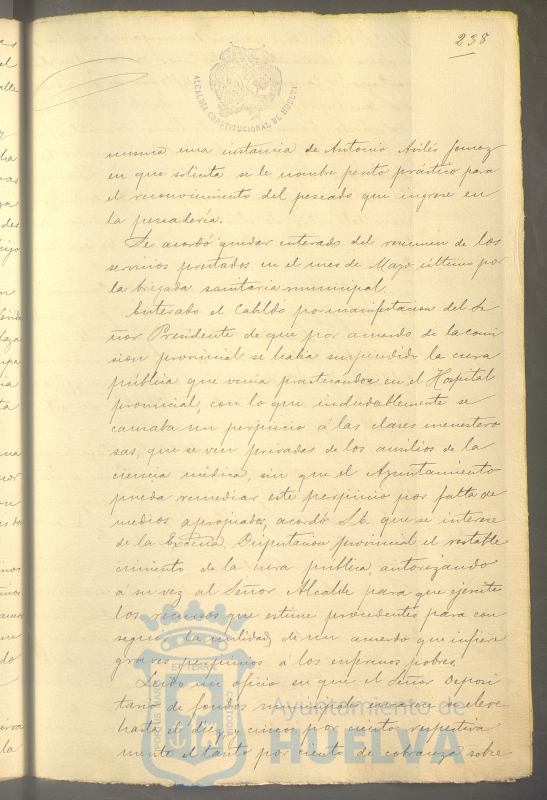 238
ALCALDIA CONSTITUCIONAL DE HUELVA
misma una instancia de Antonio Avilés Gomez
en que solicita se le nombre perito práctico para
el reconocimiento del pescado que ingrese en
la pescadería.
Se acordó quedar enterado del resumen de los
servicios prestados en el mes de Mayo último por
la brigada sanitaria municipal.
Enterado el Cabildo por manifestacion del Se
ñor Presidente de que por acuerdo de la comi
sion provincial se habia suspendido la cura
pública que venia practicandose en el Hospital
provincial, con lo que indudablemente se
causaba un perjuicio á las clases menestero
sas, que se ven privadas de los auxilios de la
ciencia médica, sin que el Ayuntamiento
pueda remediar este perjuicio por falta de
medios apropiados, acordó S.E. que se interese
de la Excma. Diputacion provincial el restable
cimiento de la cura pública, autorizando
á su vez al Señor Alcalde para que ejercite
los recursos que estime procedentes para con
seguir la nulidad de un acuerdo que infiere
graves perjuicios á los enfermos pobres.
Leido un oficio en que el Señor Deposi
tario de fondos municipales se eleve
hasta el diez y cinco por ciento respectiva
mente el tanto por ciento de cobranza sobre
PORTUS MARIS ET TERRE CUSTODIA
Ayuntamiento de
HUELVA